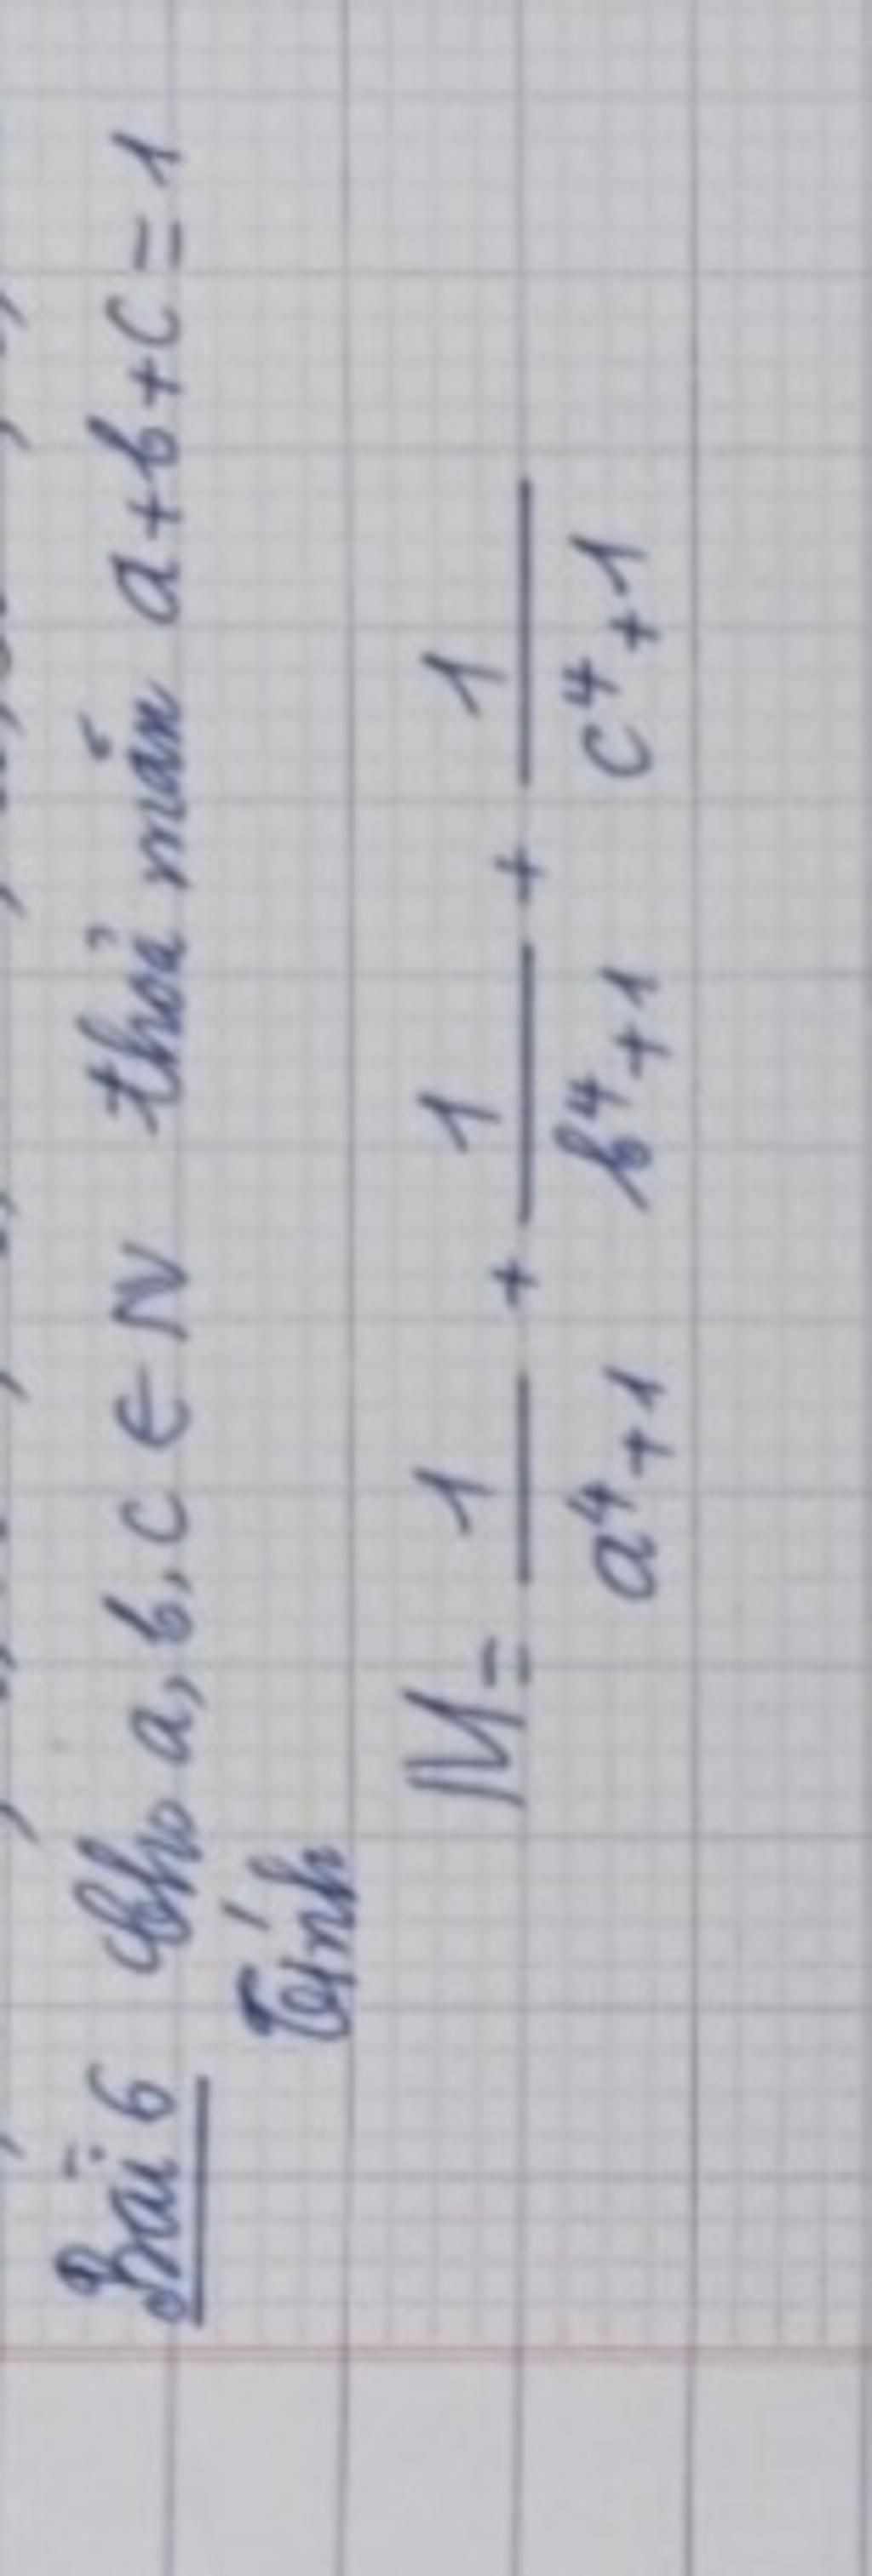 Bài 6 Cho a, b, c ∈ N thoả mãn a + b + c = 1
Tính
M = 1/(a⁴+1) + 1/(b⁴+1) + 1/(c⁴+1)